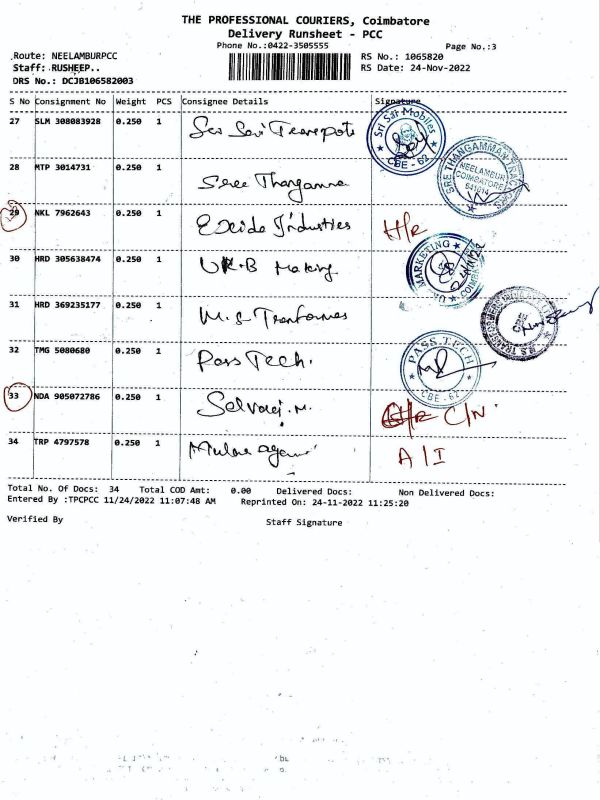 THE PROFESSIONAL COURIERS, Coimbatore
Delivery Runsheet - PCC
Phone No.:0422-3505555
Page No.:3
Route: NEELAMBURPCC
RS No.: 1065820
Staff: RUSHEEP..
RS Date: 24-Nov-2022
DRS No.: DCJB106582003
S No Consignment No Weight PCS Consignee Details Signature
27 SLM 308083928 0.250 1
Sri Sai Mobiles
CBE - 62
28 MTP 3014731 0.250 1 Sree Thangamma
SRE THANGAMMAN TRACTORS
NEELAMBUR
COIMBATORE
641014
29 NKL 7962643 0.250 1 Exide Industries H/R
30 HRD 305638474 0.250 1
MARKETING
31 HRD 369235177 0.250 1 M.S
32 TMG 5080680 0.250 1 Pass Tech.
PASS TECH
CBE - 62
33 NDA 905072786 0.250 1 Selvaraj. M. C/N
34 TRP 4797578 0.250 1 A/I
Total No. Of Docs: 34 Total COD Amt: 0.00 Delivered Docs: Non Delivered Docs:
Entered By :TPCPCC 11/24/2022 11:07:48 AM Reprinted On: 24-11-2022 11:25:20
Verified By Staff Signature